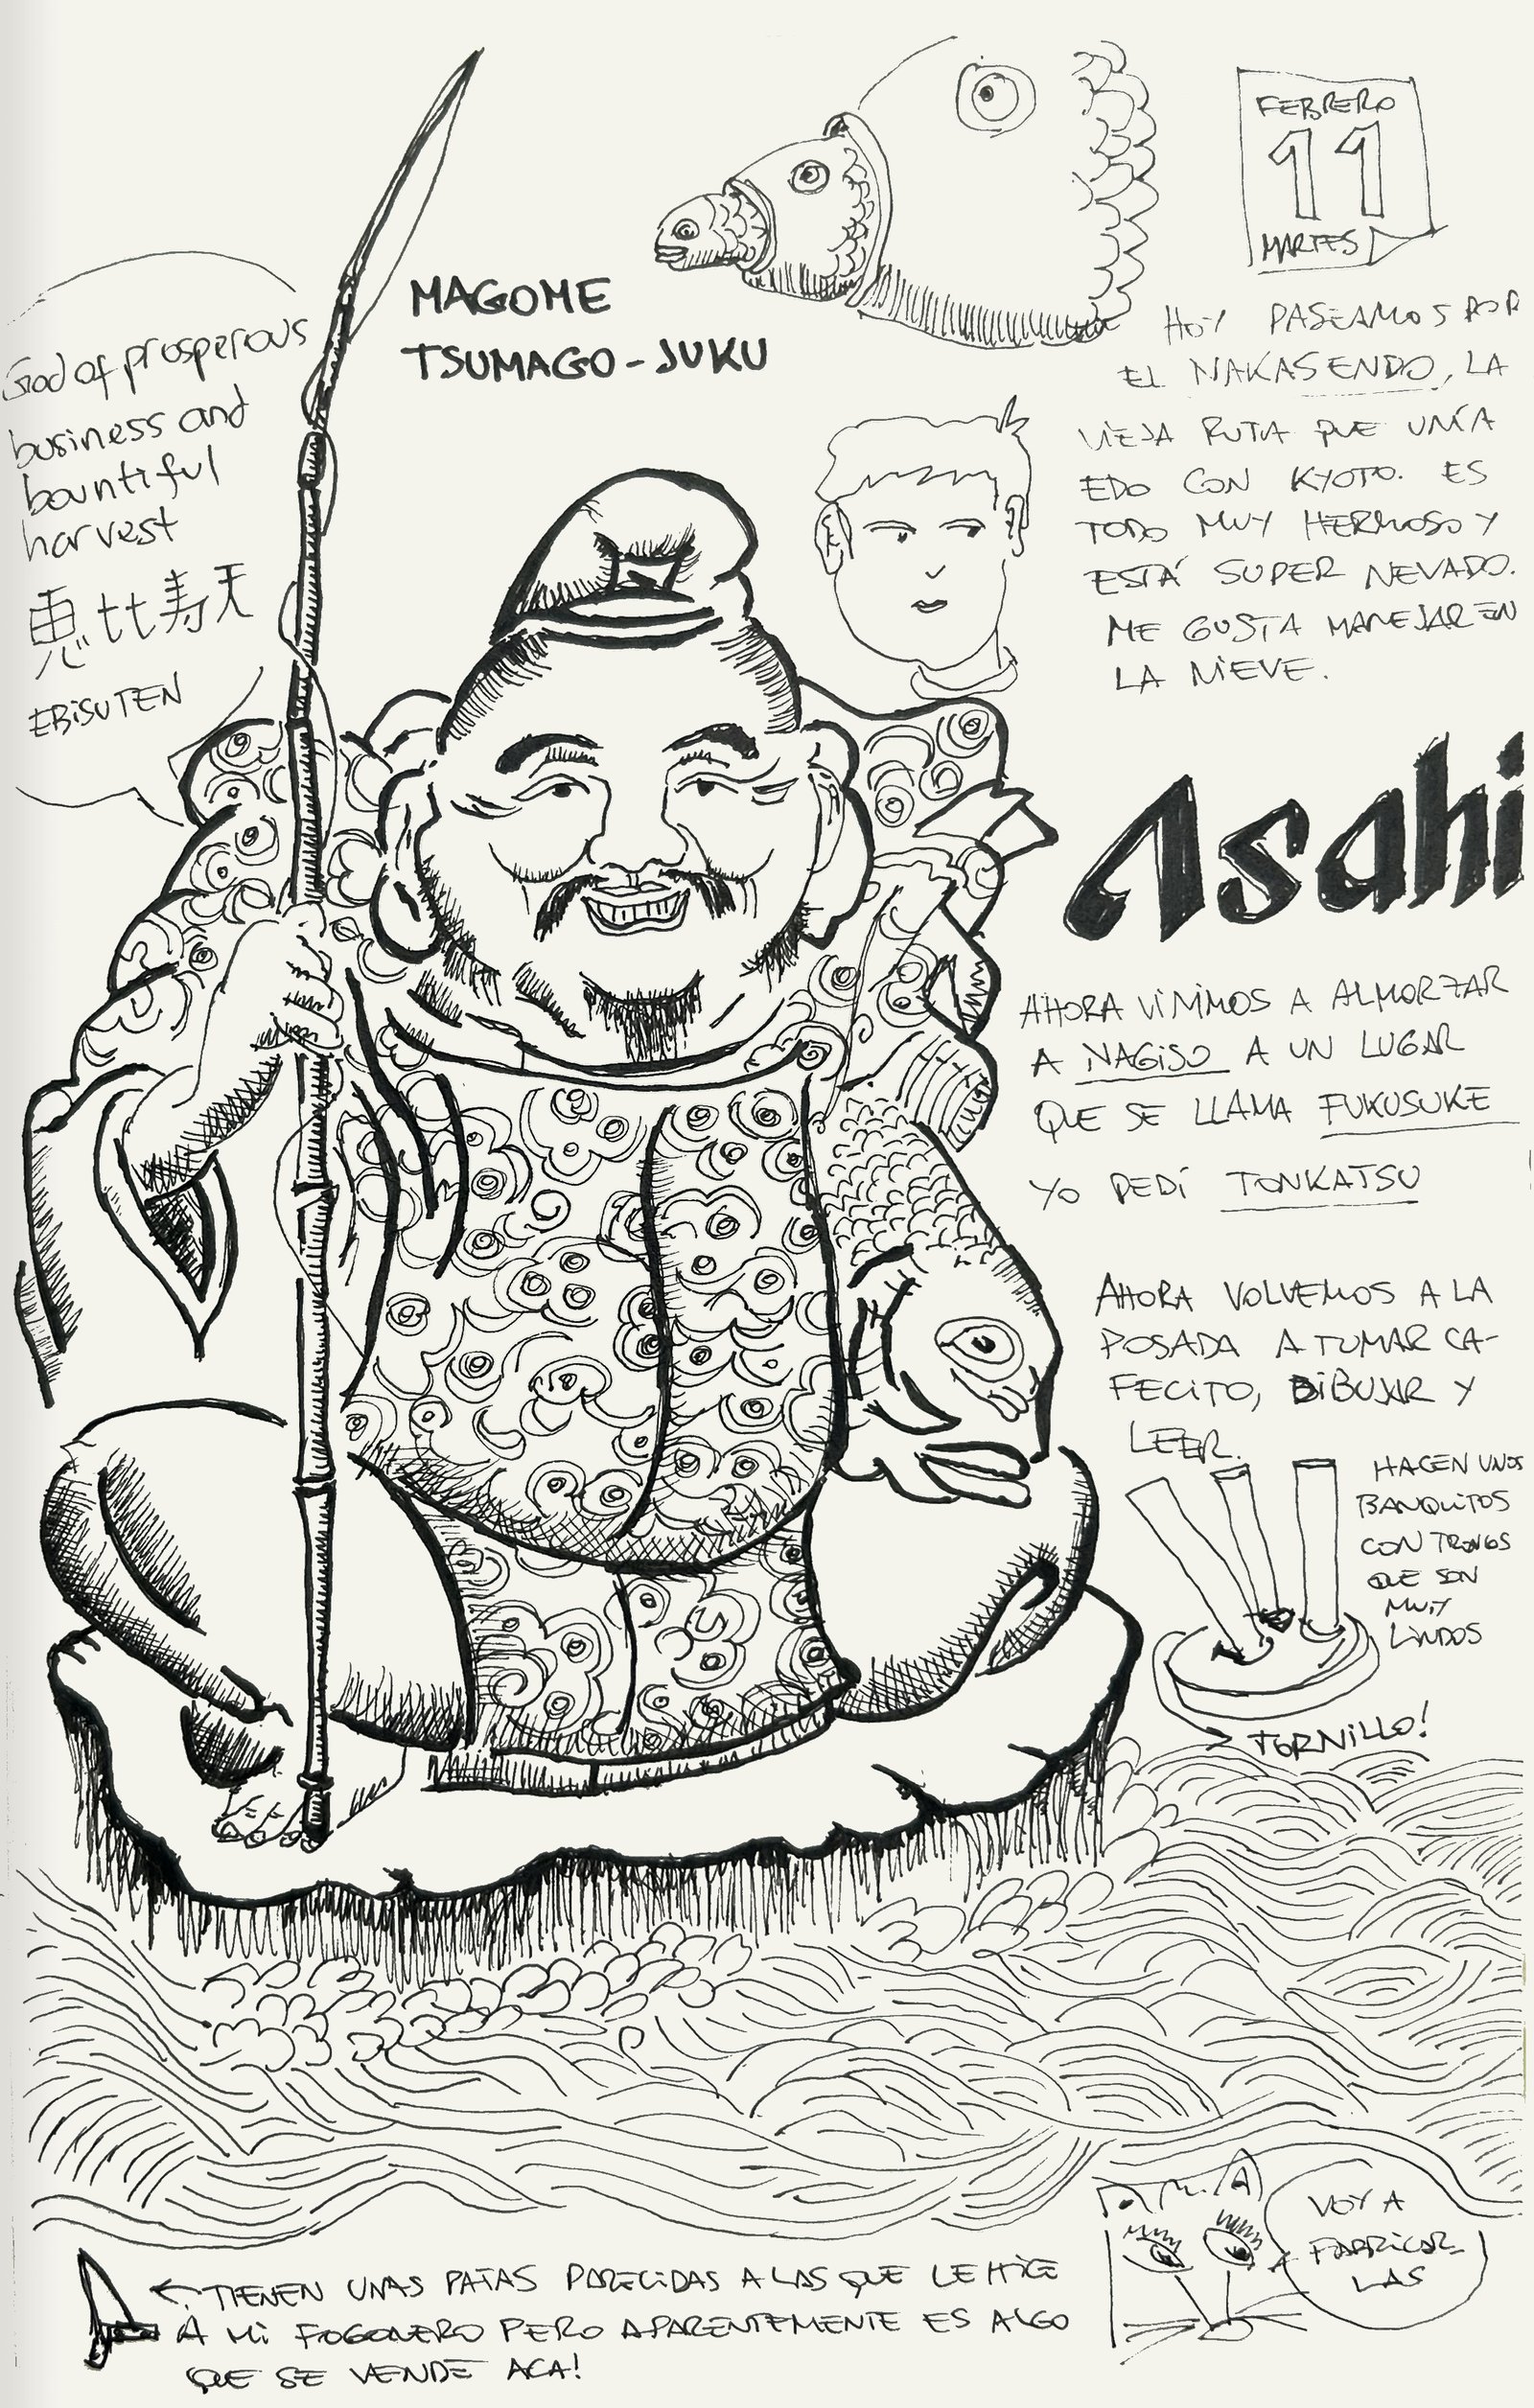 FEBRERO
11
MARTES
MAGOME
TSUMAGO-JUKU
God of prosperous
business and
bountiful
harvest
恵比寿天
EBISUTEN
HOY PASEAMOS POR
EL NAKASENDO, LA
VIEJA RUTA QUE UNÍA
EDO CON KYOTO. ES
TODO MUY HERMOSO Y
ESTÁ SUPER NEVADO.
ME GUSTA MANEJAR EN
LA NIEVE.
Asahi
AHORA VINIMOS A ALMORZAR
A NAGISO A UN LUGAR
QUE SE LLAMA FUKUSUKE
YO PEDÍ TONKATSU
AHORA VOLVEMOS A LA
POSADA A TUMAR CA-
FECITO, DIBUJAR Y
LEER.
HACEN UNOS
BANQUITOS
CON TRONCOS
QUE SON
MUY
LINDOS
TORNILLO!
VOY A
FABRICAR-
LAS
TIENEN UNAS PATAS PARECIDAS A LAS QUE LE HICE
A MI FOGONERO PERO APARENTEMENTE ES ALGO
QUE SE VENDE ACA!